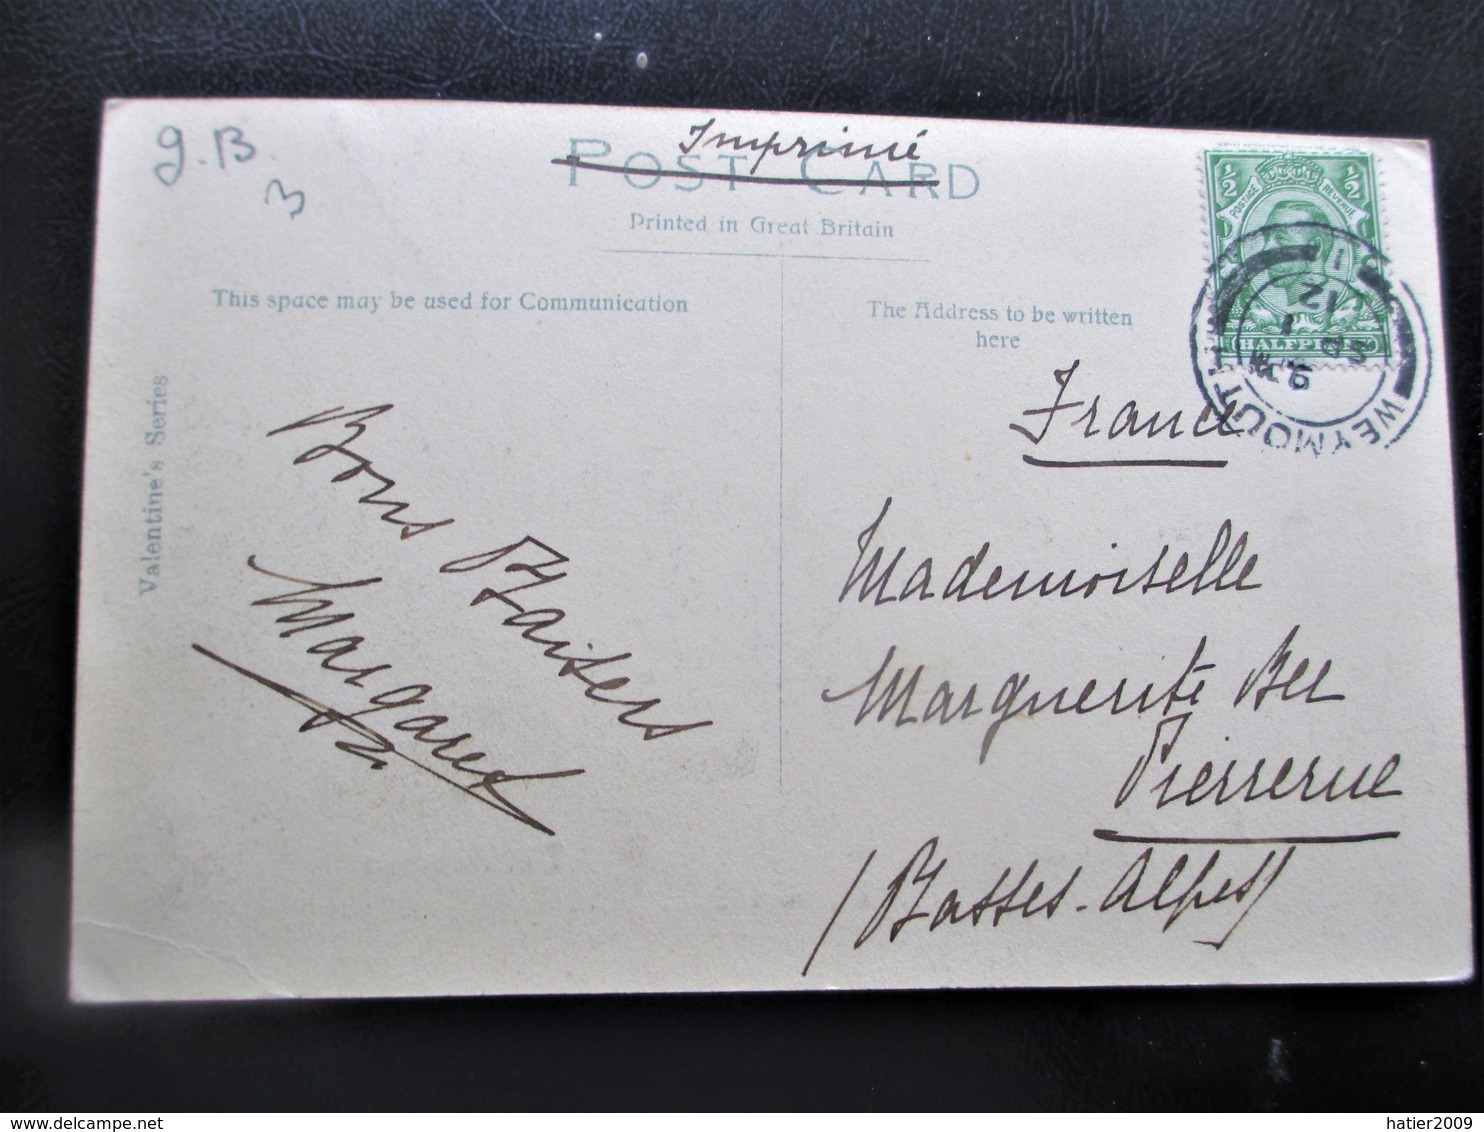 G.B
3
Imprimé
POST CARD
Printed in Great Britain
This space may be used for Communication
The Address to be written
here
Valentine's Series
½ ½
POSTAGE REVENUE
HALFPENNY
WEYMOUTH
1
12
SP 1
9
Bons Baisers
Margaret
France
Mademoiselle
Marguerite
Pierrerue
(Basses-Alpes)
hatier2009